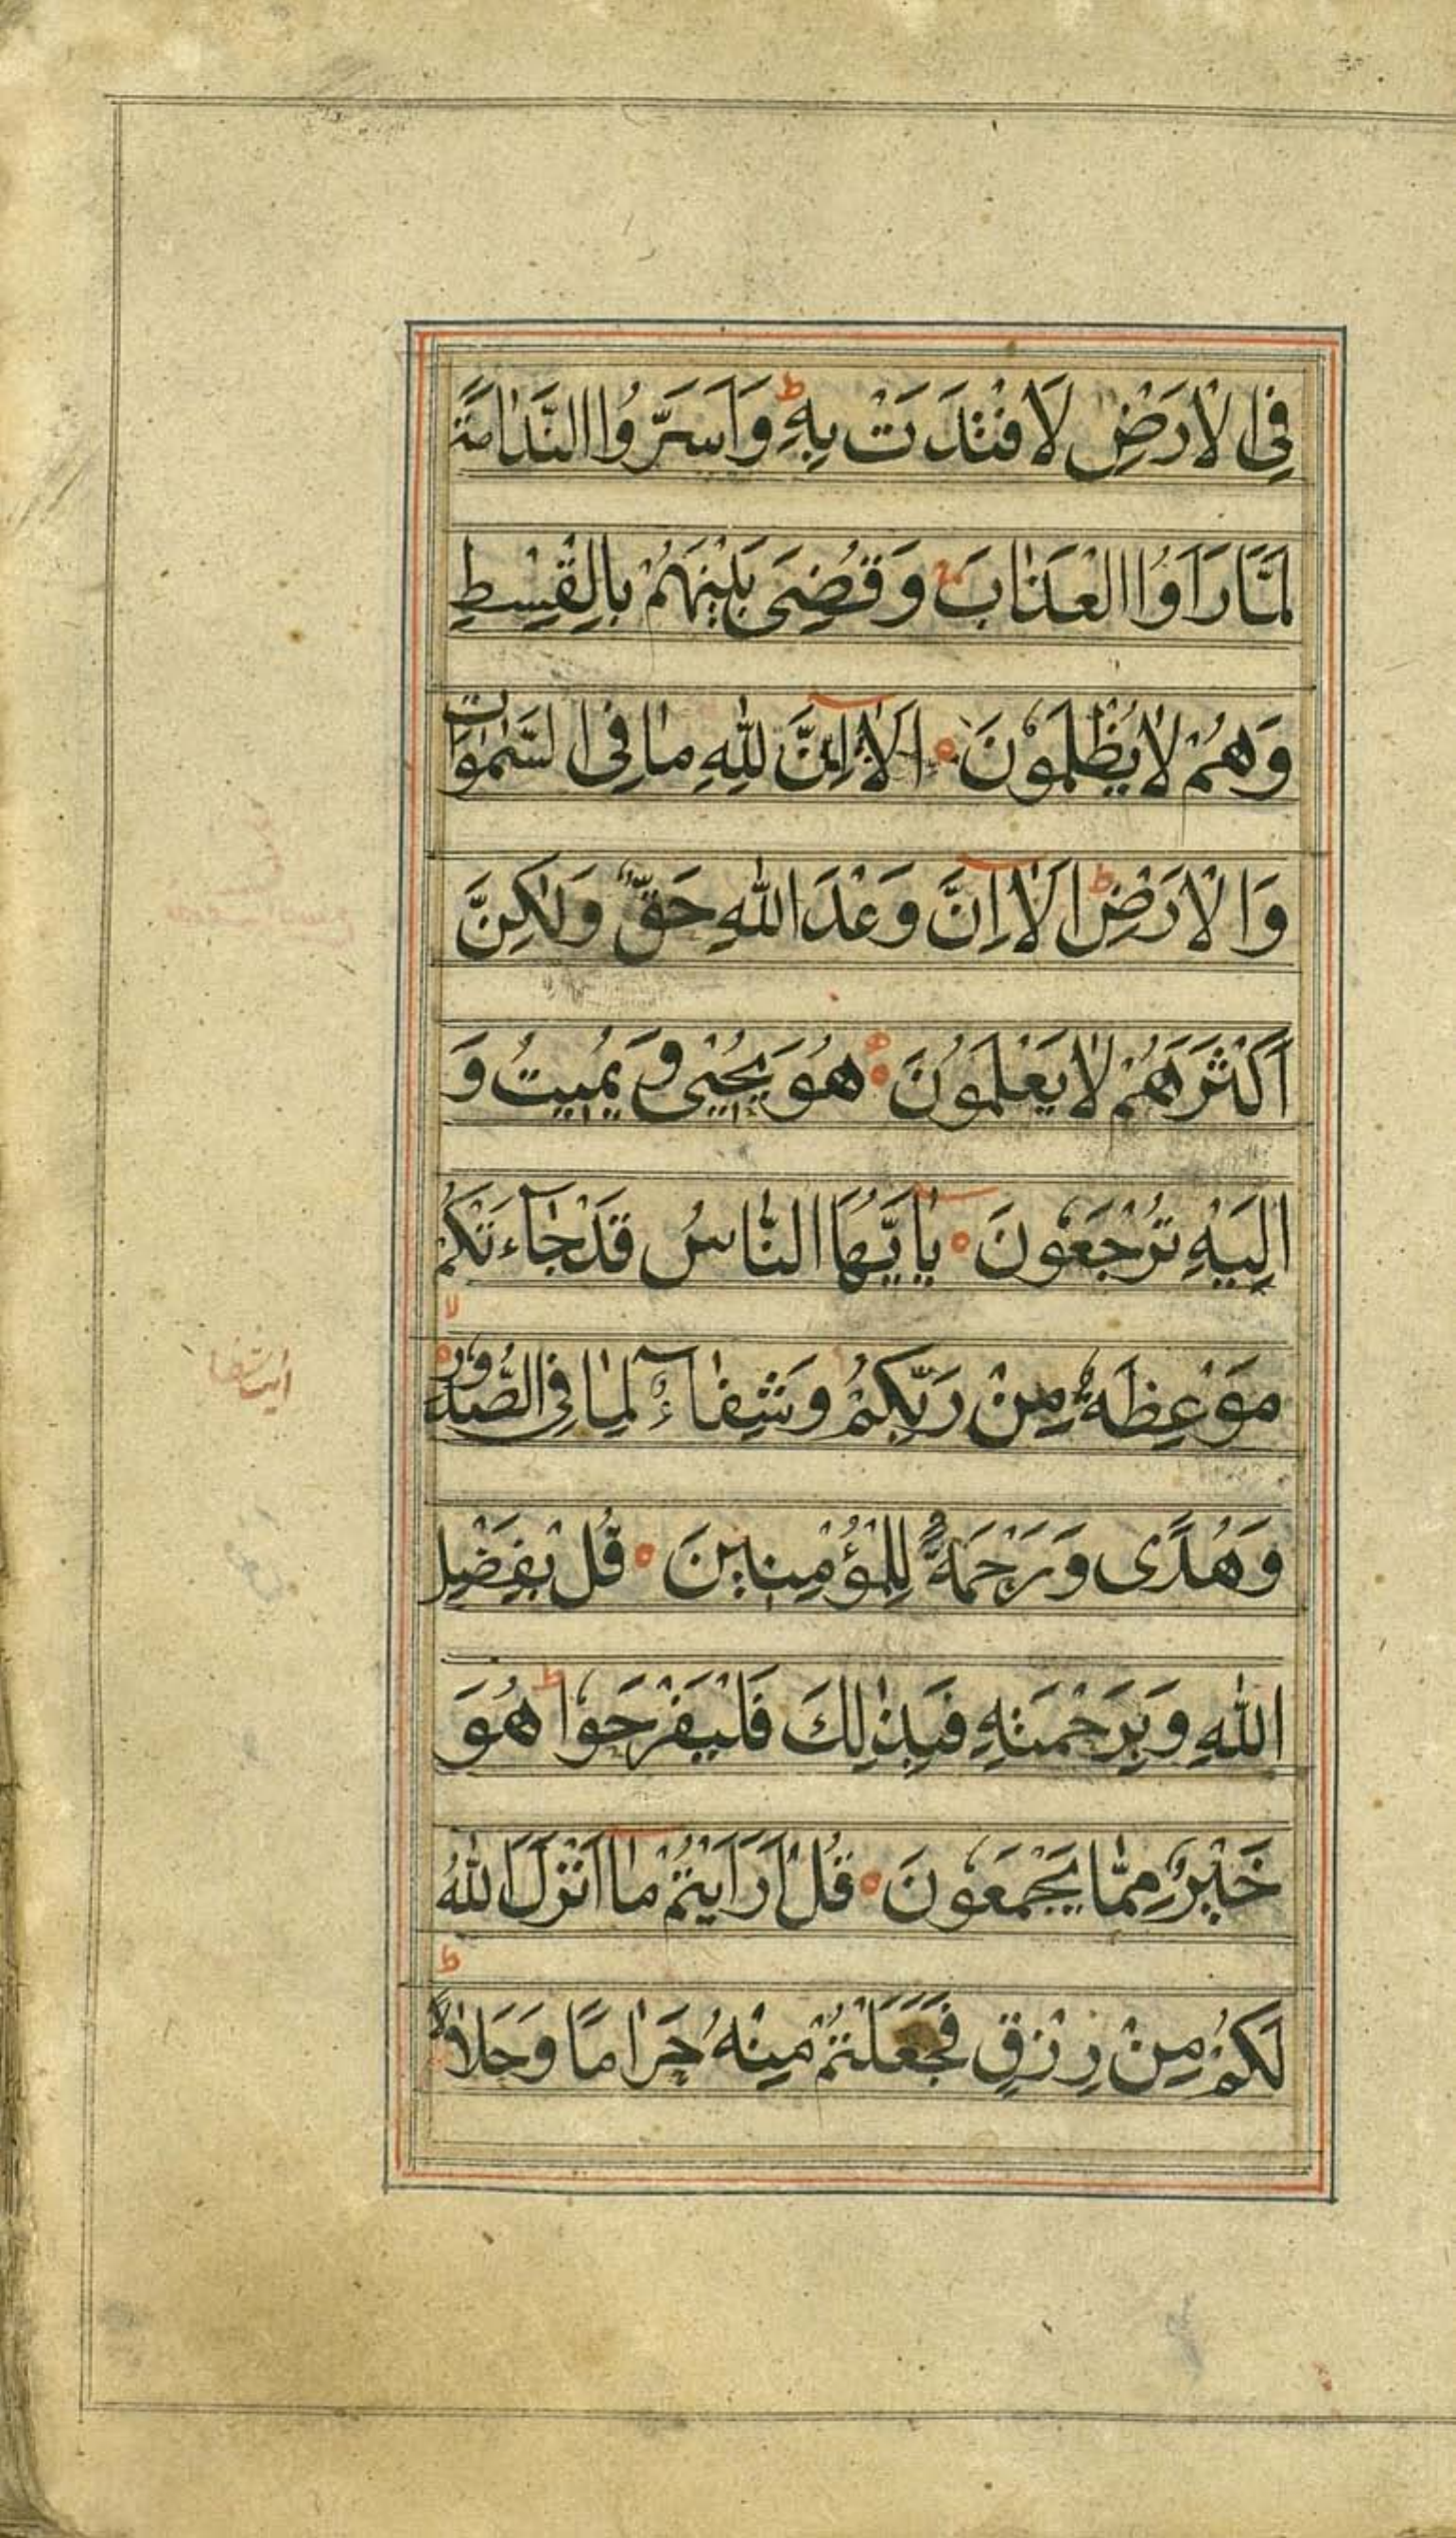 فِی الْاَرْضِ لَافْتَدَتْ بِهٖ ؕ وَاَسَرُّوا النَّدَامَةَ
لَمَّا رَاَوُا الْعَذَابَ ۚ وَقُضِیَ بَیْنَهُمْ بِالْقِسْطِ
وَهُمْ لَا یُظْلَمُوْنَ ۝ اَلَاۤ اِنَّ لِلّٰهِ مَا فِی السَّمٰوَاتِ
وَالْاَرْضِ ؕ اَلَاۤ اِنَّ وَعْدَ اللّٰهِ حَقٌّ وَّلٰكِنَّ
اَكْثَرَهُمْ لَا یَعْلَمُوْنَ ۝ هُوَ یُحْیٖ وَیُمِیْتُ وَ
اِلَیْهِ تُرْجَعُوْنَ ۝ یٰۤاَیُّهَا النَّاسُ قَدْ جَآءَتْكُمْ
مَوْعِظَةٌ مِنْ رَبِّكُمْ وَشِفَآءٌ لِمَا فِی الصُّدُوْرِ ۙ
وَهُدًی وَرَحْمَةٌ لِلْمُؤْمِنِیْنَ ۝ قُلْ بِفَضْلِ
اللّٰهِ وَبِرَحْمَتِهٖ فَبِذٰلِكَ فَلْیَفْرَحُوْا ؕ هُوَ
خَیْرٌ مِمَّا یَجْمَعُوْنَ ۝ قُلْ اَرَاَیْتُمْ مَاۤ اَنْزَلَ اللّٰهُ
لَكُمْ مِنْ رِزْقٍ فَجَعَلْتُمْ مِنْهُ حَرَامًا وَحَلَالًا ؕ